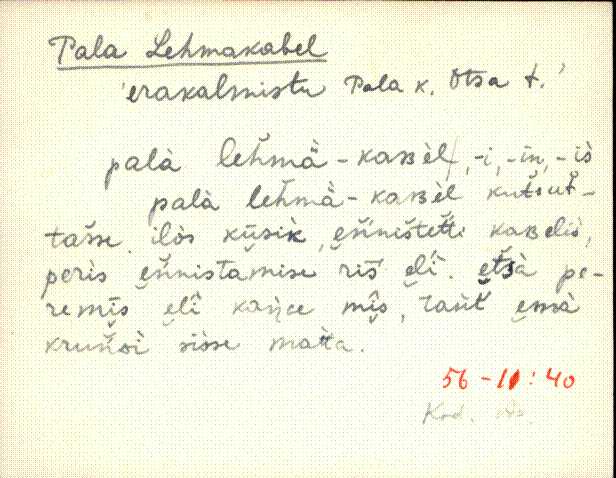 Pala Lehmakabel
'erakalmistu Pala k. Otsa t.'
palà lehmä-kaʙèl, -i, -in, -is
palà lehmä-kaʙèl kutsut-
tasse. ilòs kūsik, ennistetti kaʙelis,
peris ennistamise ris eli. etsà pe-
remis eli kange mis, laut emà
krunʙi sisse matta.
56-11:40
Kod.